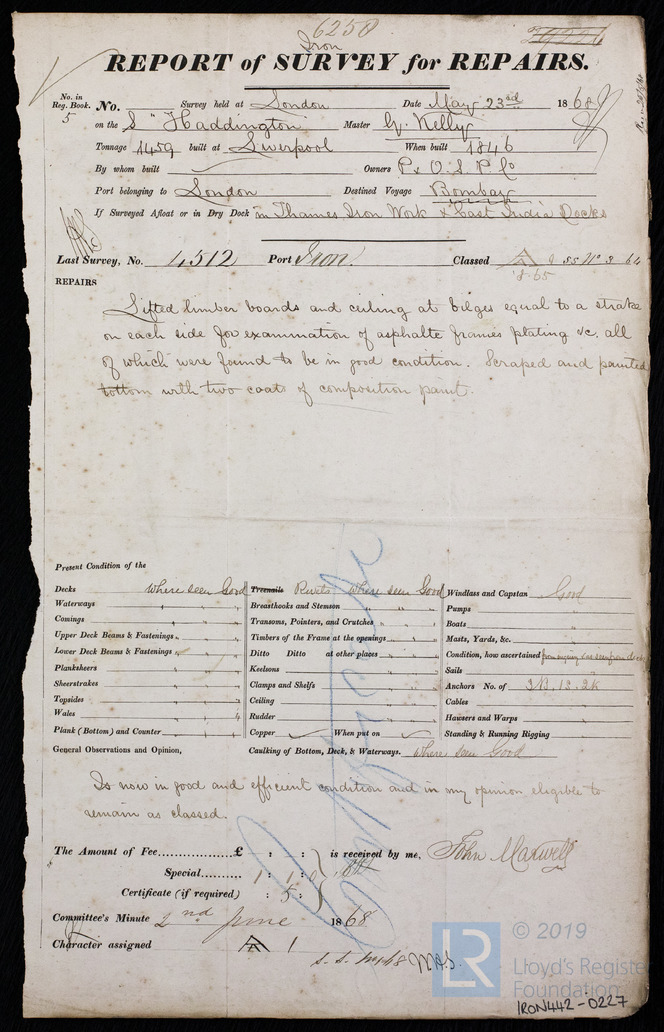 6250
Iron
REPORT of SURVEY for REPAIRS.
No. in Reg. Book. No. Survey held at London Date May 23rd 1868
5 on the S "Haddington Master G. Kelly
Tonnage 1459 built at Liverpool When built 1846
By whom built Owners P & O. S. P. Co
Port belonging to London Destined Voyage Bombay
If Surveyed Afloat or in Dry Dock in Thames Iron Work & East India Docks
Last Survey, No. 4512 Port Iron. Classed A SS No 3 64
REPAIRS
Lifted limber boards and ceiling at bilges equal to a strake
on each side for examination of asphalte frames plating &c. all
of which were found to be in good condition. Scraped and painted
bottom with two coats of composition paint.
Present Condition of the
Decks where seen Good Treenails Rivets where seen Good Windlass and Capstan Good
Waterways " " Breasthooks and Stemson " " Pumps "
Comings " " Transoms, Pointers, and Crutches " " Boats "
Upper Deck Beams & Fastenings " " Timbers of the Frame at the openings " " Masts, Yards, &c.
Lower Deck Beams & Fastenings " " Ditto Ditto at other places " " Condition, how ascertained from
Planksheers " " Keelsons " " Sails
Sheerstrakes " " Clamps and Shelfs " " Anchors No. of 3B. 1S. 2K
Topsides " " Ceiling " " Cables
Wales " " Rudder " " Hawsers and Warps
Plank (Bottom) and Counter " " Copper When put on Standing & Running Rigging
General Observations and Opinion, Caulking of Bottom, Deck, & Waterways. where seen Good
Is now in good and efficient condition and in my opinion eligible to
remain as classed.
The Amount of Fee £ : : is received by me, John Maxwell
Special 1 : 1 : 0
Certificate (if required) : 5 :
Committee's Minute 2nd June 1868
Character assigned A 1
© 2019
LR Lloyd's Register
Foundation
IRON442-0227